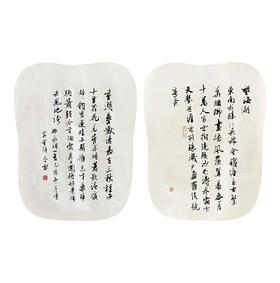 望海潮
東南形勝三吳都會錢塘自古繁
華煙柳畫橋風簾翠幕參差
十萬人家雲樹繞堤沙怒濤卷霜雪
天塹無涯市列珠璣戶盈羅綺
競豪奢
重湖疊巘清嘉有三秋桂子
十里荷花羌管弄晴菱歌泛夜
嬉嬉釣叟蓮娃千騎擁高牙乘醉
聽簫鼓吟賞煙霞異日圖將好景
歸去鳳池誇 柳永詞一首